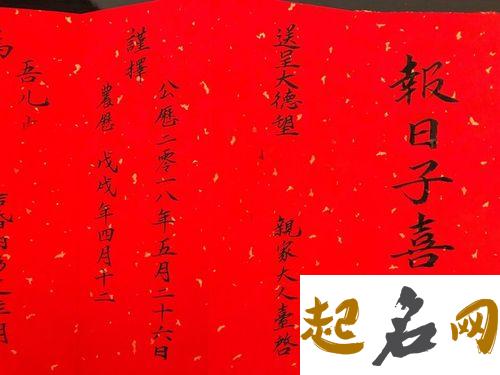 報日子喜
送呈大德望 親家大人臺啓
謹擇
公曆二零一八年五月二十六日
農曆 戊戌年四月十二
吾兒
起名网